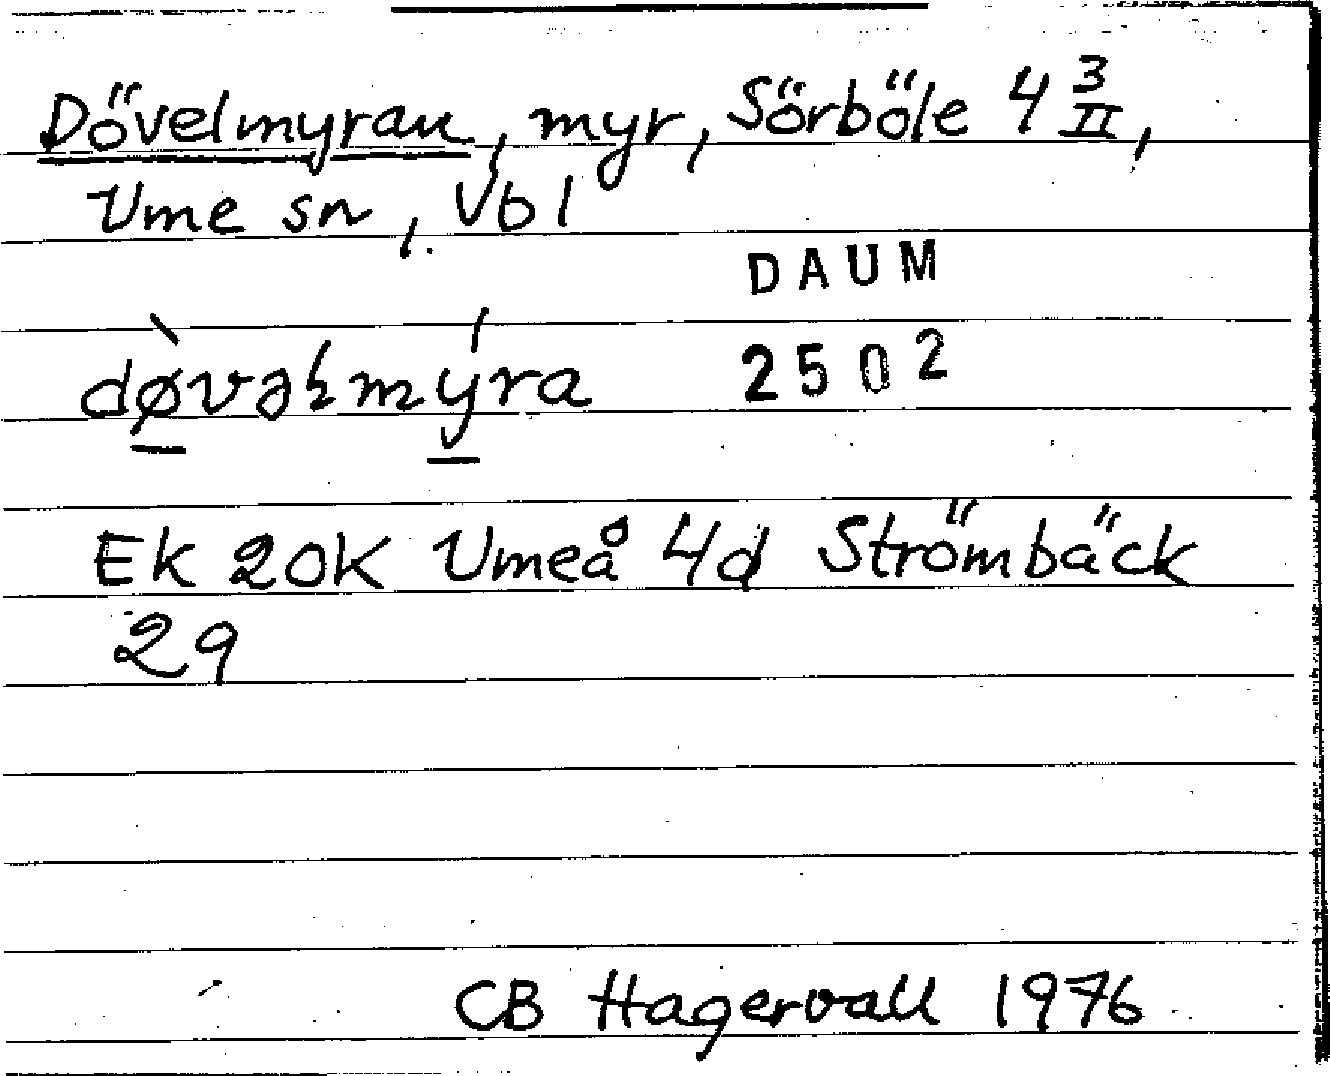 Dövelmyran, myr, Sörböle 4 3/II,
Ume sn, Vbl
DAUM
dø̀vəɫmýra 2502
Ek 20K Umeå 4d Strömbäck
29
CB Hagervall 1976